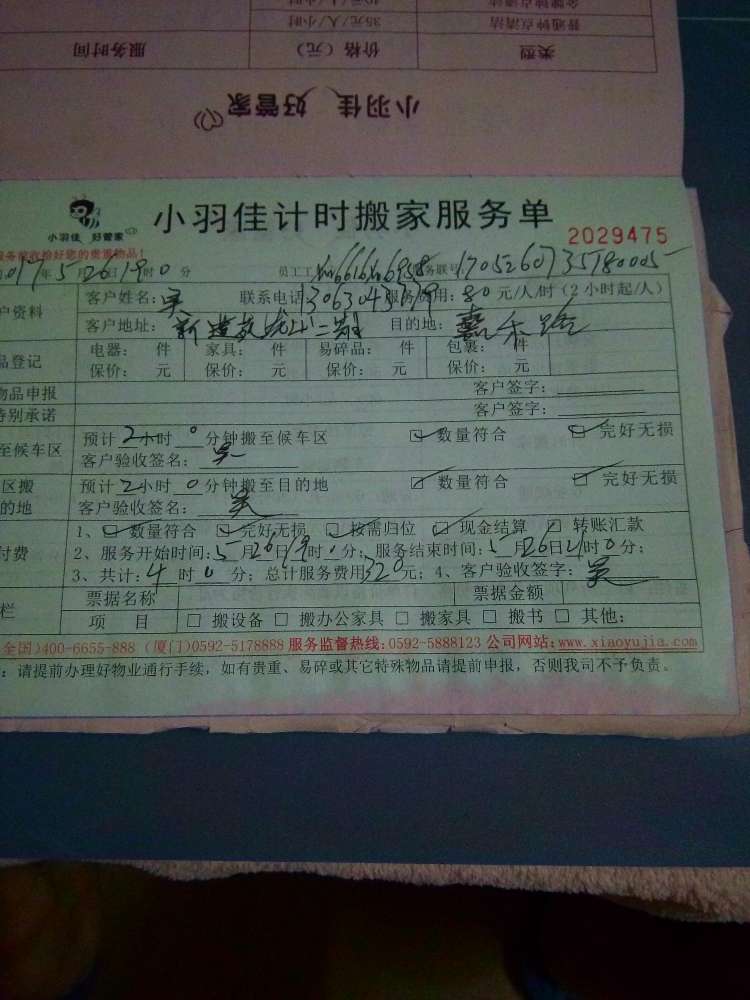 普通钟点清洁 35元/人/小时
类型 价格（元） 服务时间
小羽佳 好管家
小羽佳 好管家
小羽佳计时搬家服务单
2029475
017年5月26日19时0分 员工工 务联号1705260735180005
户资料 客户姓名:吴 联系电话 服务费用:80元/人/时（2小时起/人）
客户地址: 目的地:嘉禾路
品登记 电器: 件 家具: 件 易碎品: 件 包裹: 件
保价: 元 保价: 元 保价: 元 保价: 元
物品申报 客户签字:
特别承诺 客户签字:
至候车区 预计2小时0分钟搬至候车区 ☑数量符合 ☑完好无损
客户验收签名: 吴
区搬 预计2小时0分钟搬至目的地 ☑数量符合 ☑完好无损
的地 客户验收签名: 吴
1、☑数量符合 ☑完好无损 ☑按需归位 ☑现金结算 ☑转账汇款
付费 2、服务开始时间:5月26日19时0分; 服务结束时间:5月26日21时0分;
3、共计:4时0分; 总计服务费用320元; 4、客户验收签字: 吴
栏 票据名称 票据金额
项 目 □搬设备 □搬办公家具 □搬家具 □搬书 □其他:
全国)400-6655-888 (厦门)0592-5178888 服务监督热线:0592-5888123 公司网站:www.xiaoyujia.com
：请提前办理好物业通行手续，如有贵重、易碎或其它特殊物品请提前申报，否则我司不予负责。